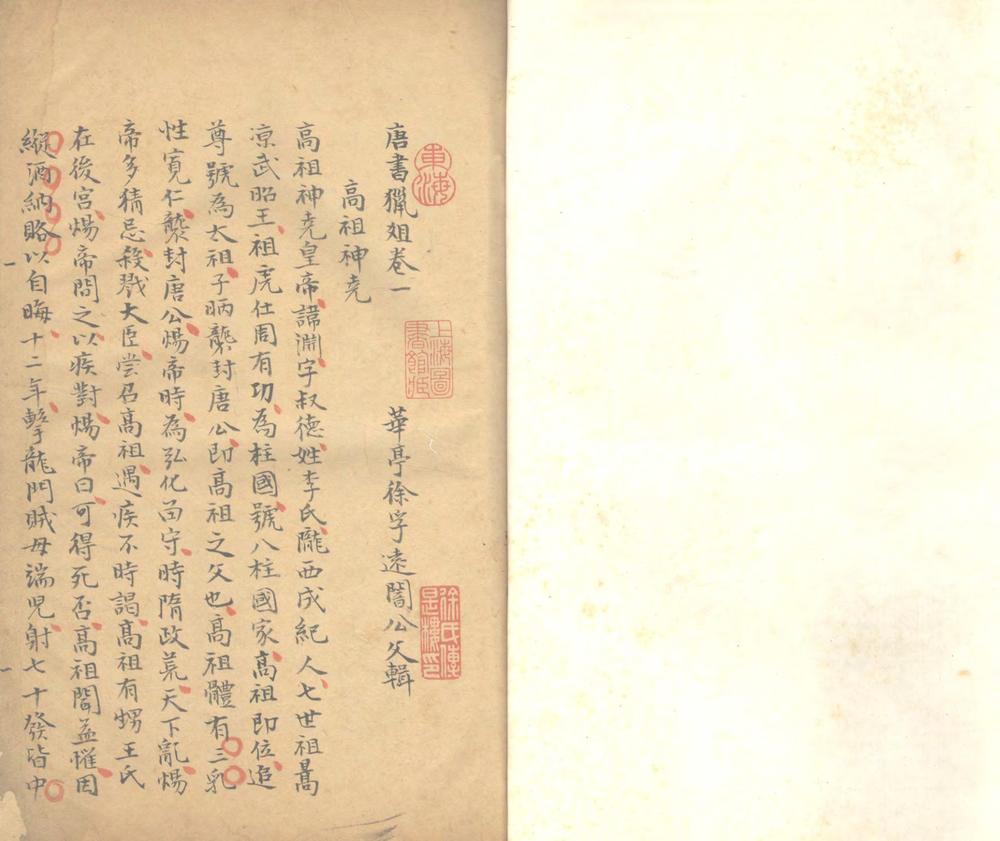 唐書獵俎卷一
華亭徐孚遠闇公父輯
高祖神堯
高祖神堯皇帝諱淵字叔德姓李氏隴西成紀人七世祖暠
凉武昭王祖虎仕周有功為柱國號八柱國家高祖即位追
尊號為太祖子昞襲封唐公即高祖之父也高祖體有三乳
性寬仁襲封唐公煬帝時為弘化畄守時隋政荒天下亂煬
帝多猜忌殺戮大臣嘗召髙祖遇疾不時謁髙祖有甥王氏
在後宮煬帝問之以疾對煬帝曰可得死否髙祖聞益懼因
縱酒納賂以自晦十二年擊龍門賊母端児射七十發皆中
東海
上海圖
書館藏
徐氏傳
是樓印